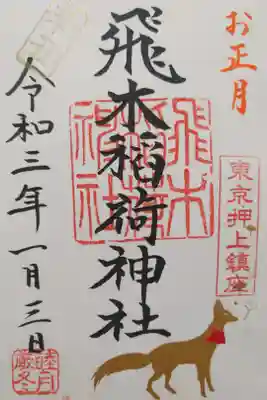 お正月
東京押上鎮座
飛木稲荷神社
飛木
神社
令和三年一月三日
睦月
厳冬